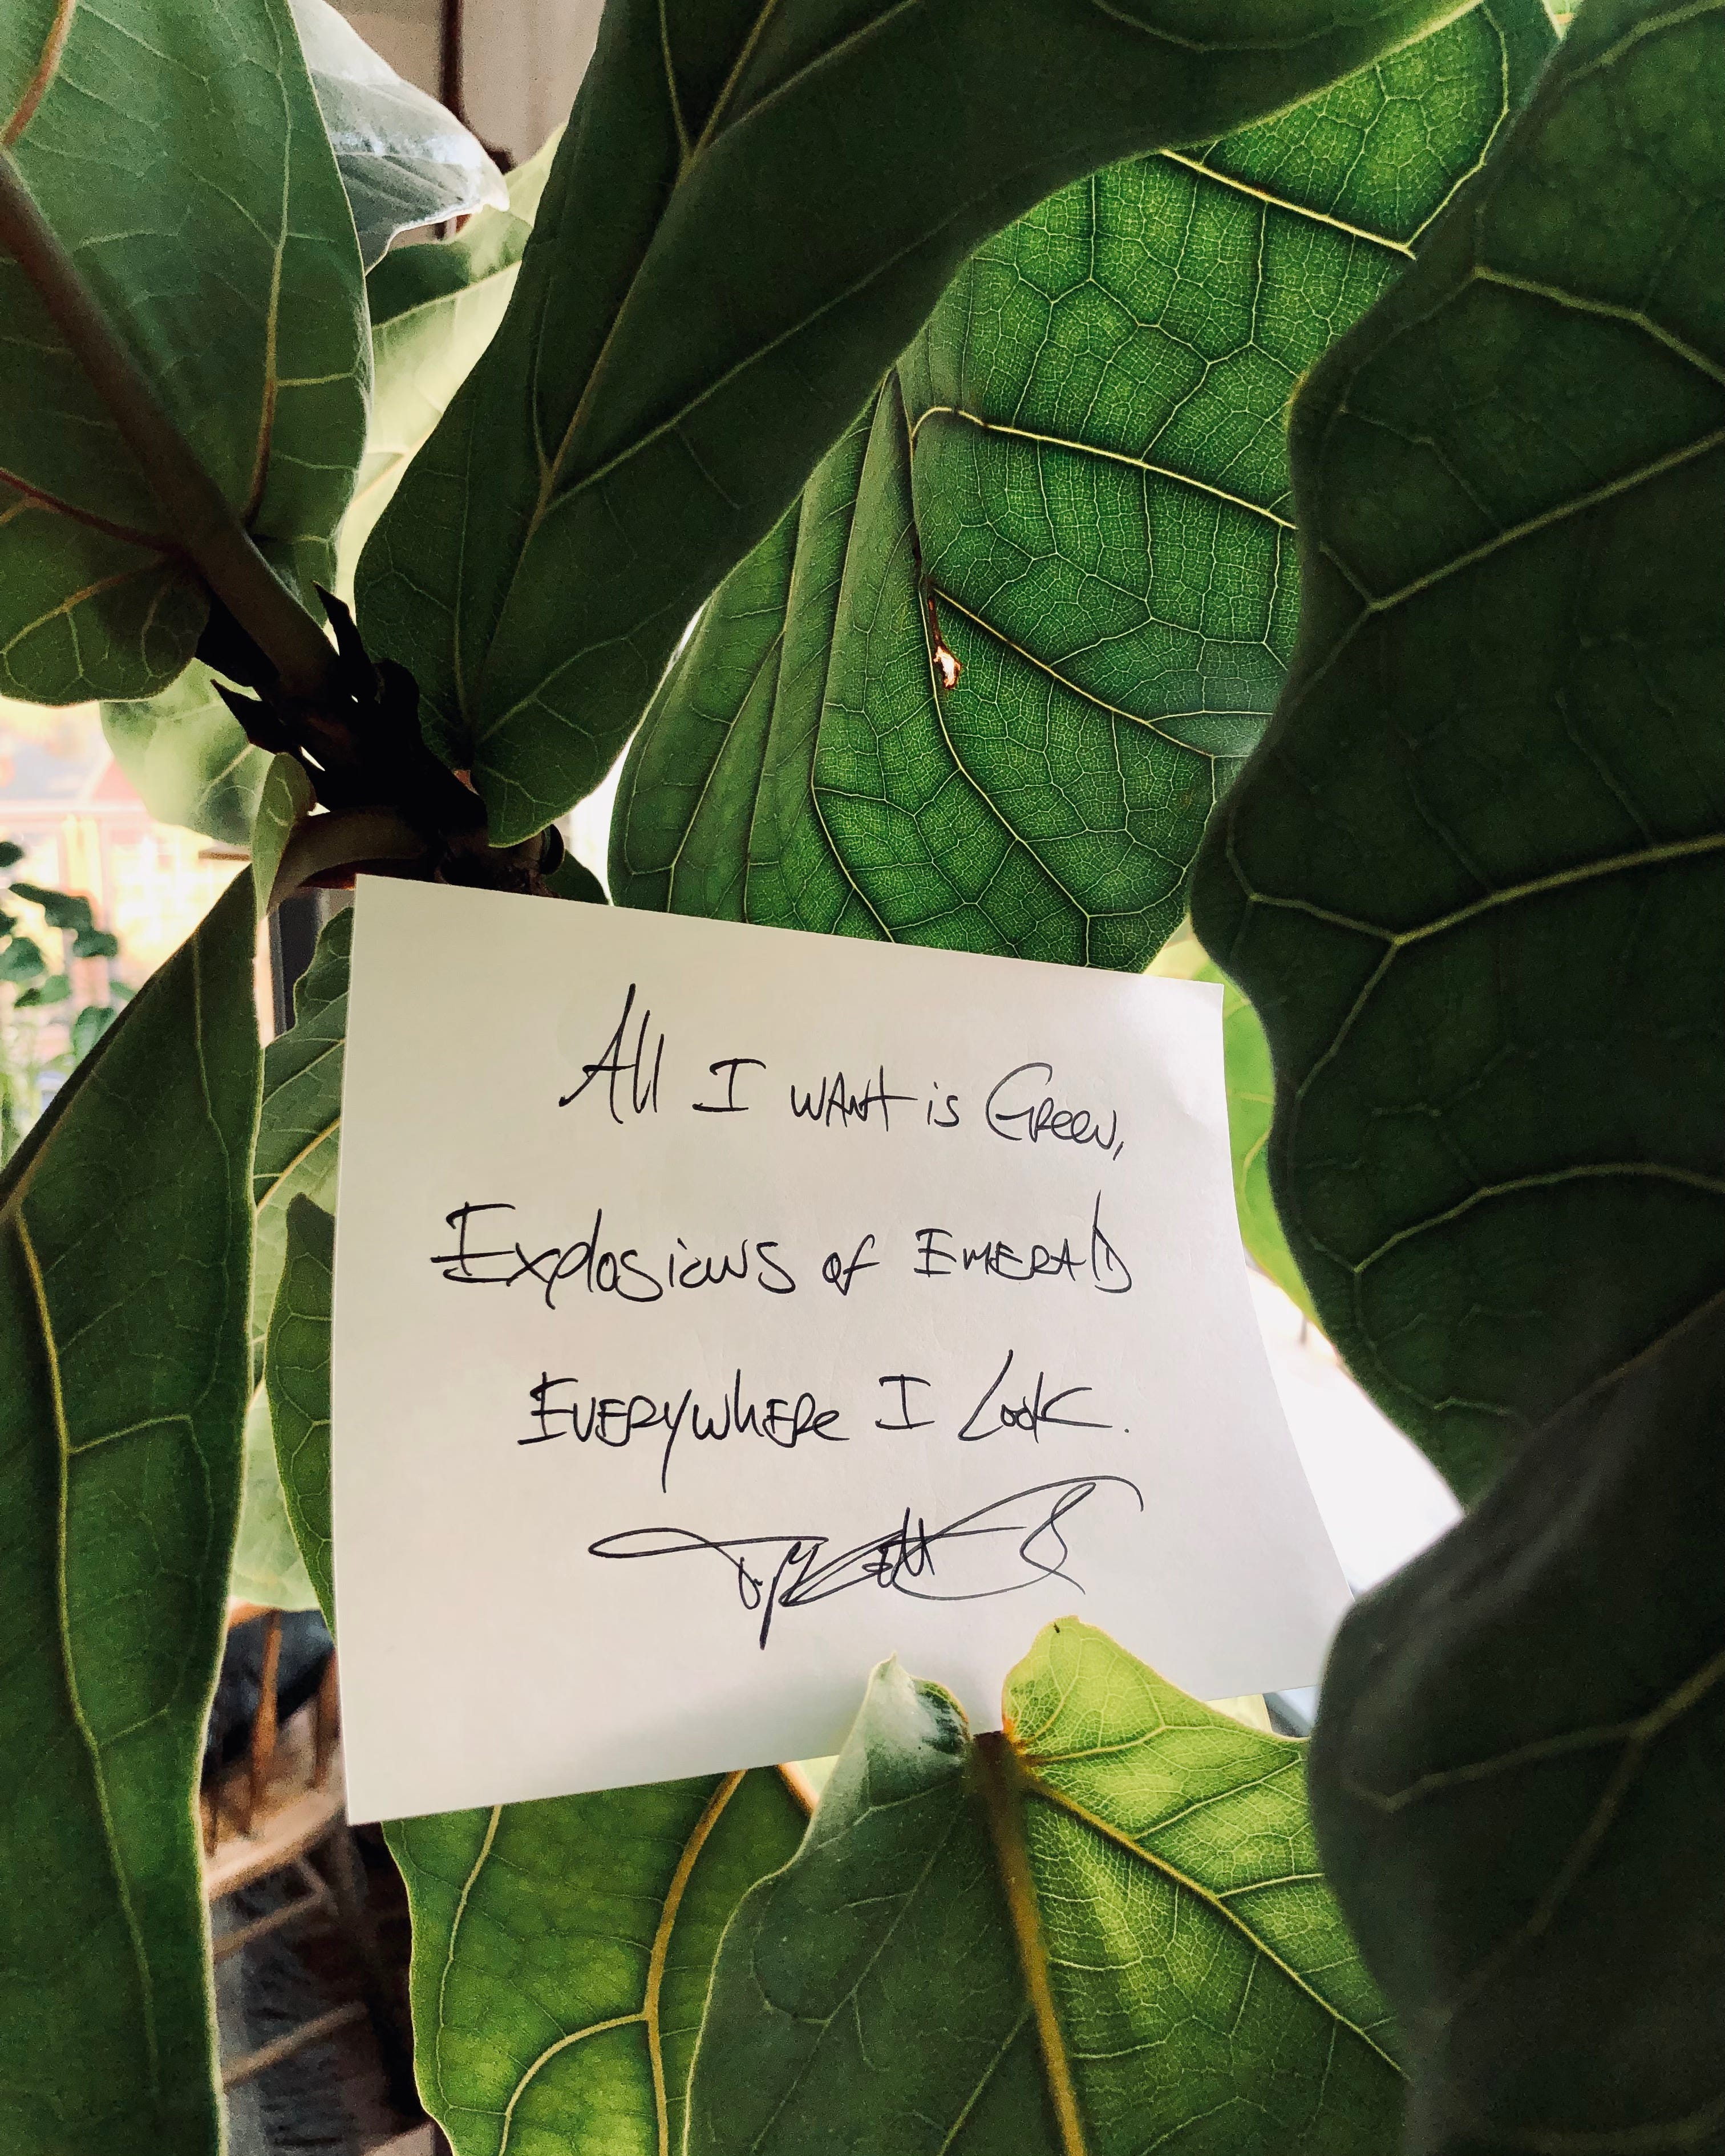 All I want is Green,
Explosions of Emerald
Everywhere I Look.